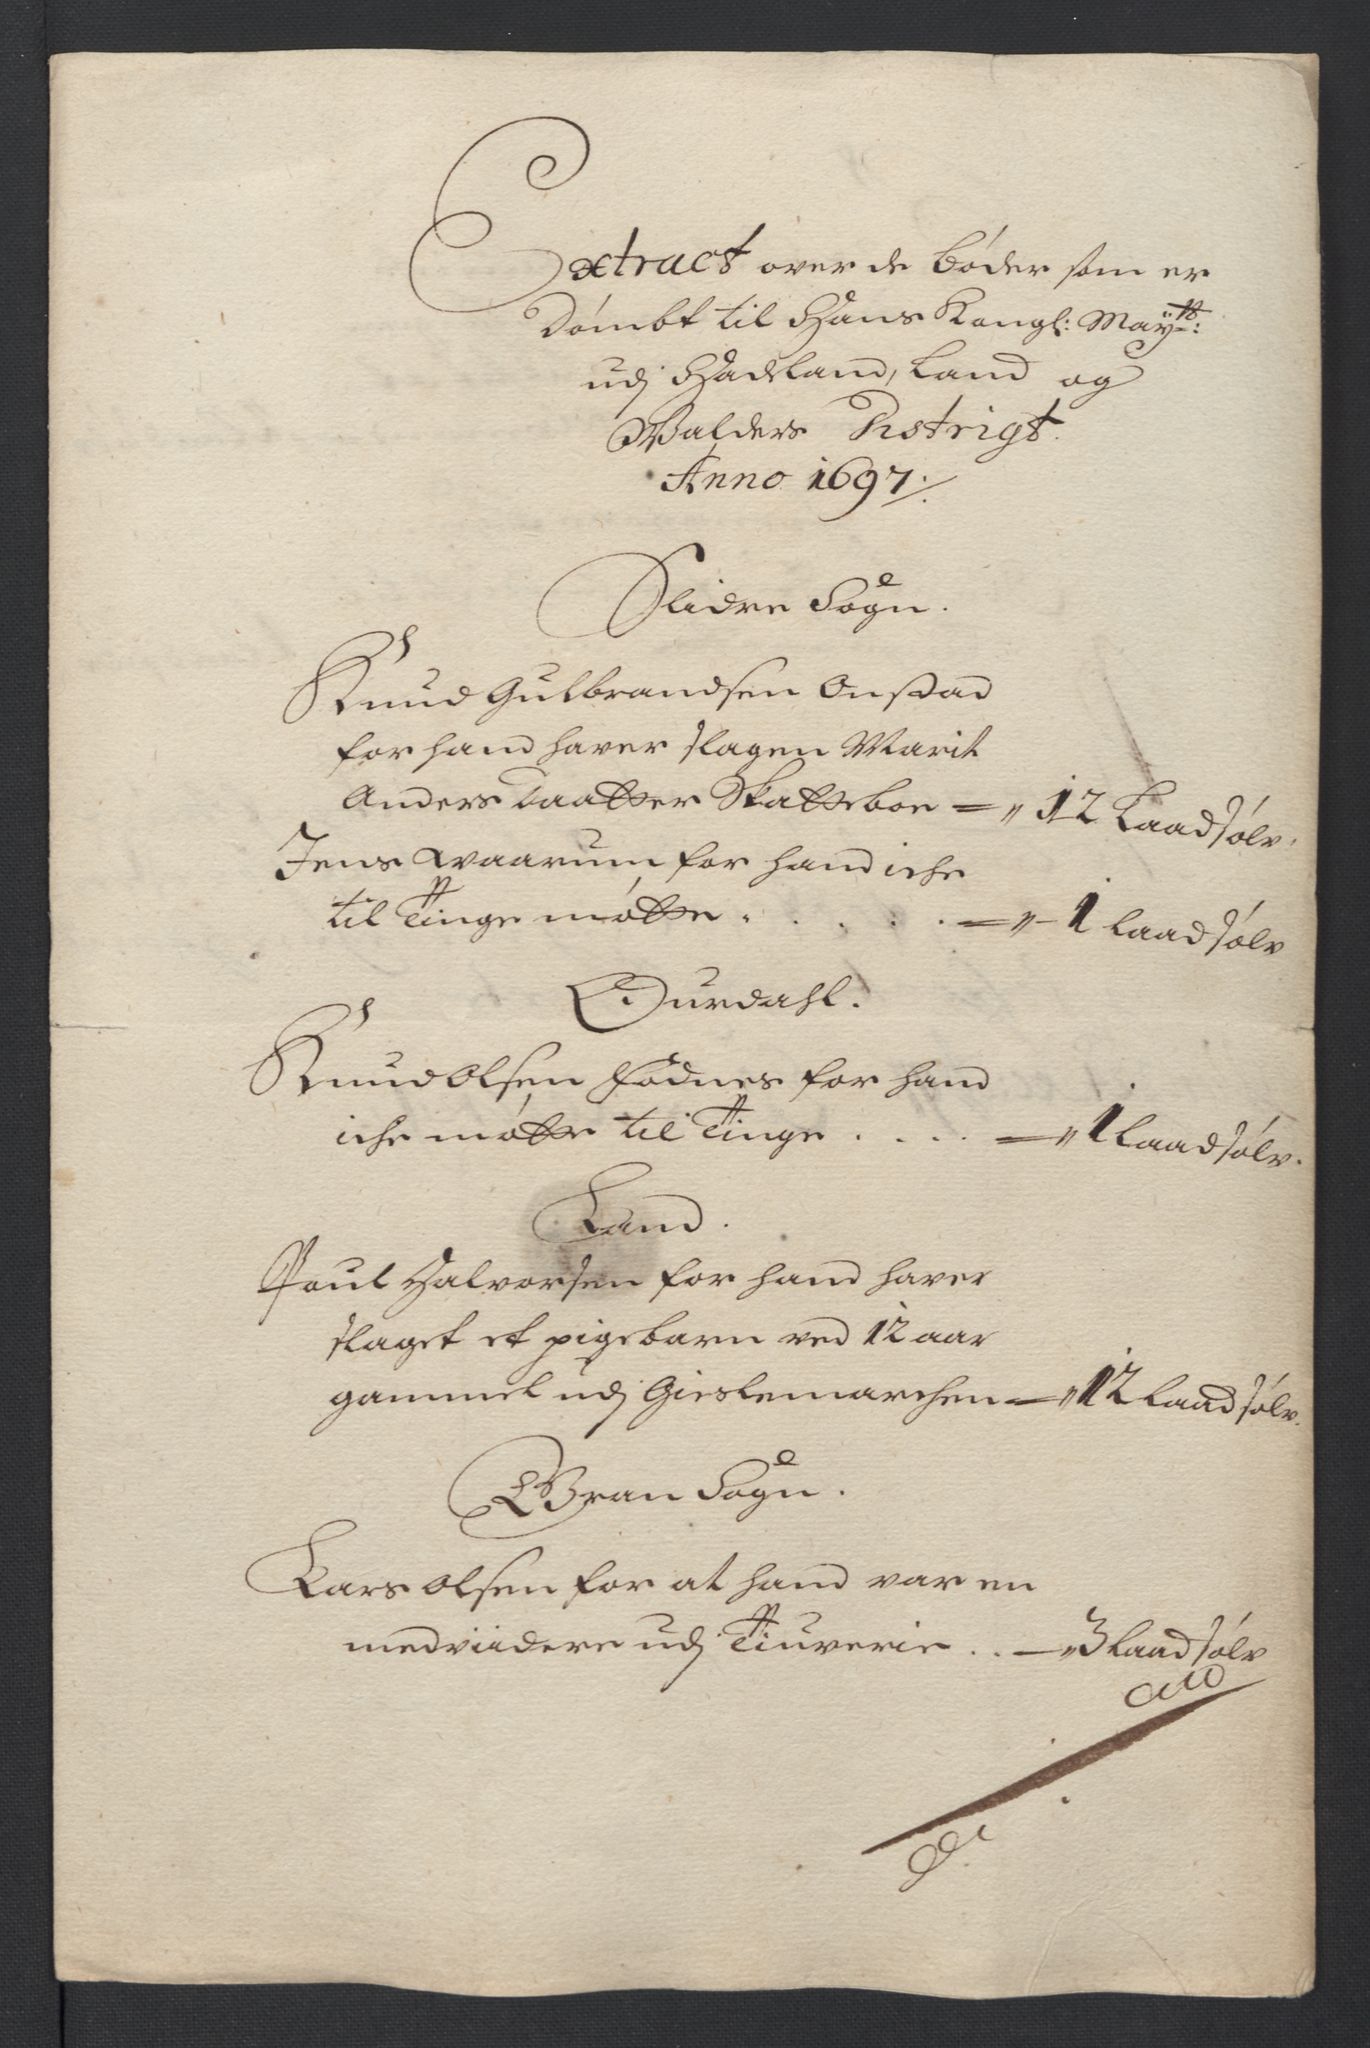 Extract over de bøder som er
Dømbt til Hans Kongl: Maÿtt:
udj Hadeland, Land og
Walders Distrigt.
Anno 1697:/
Slidre Sogn.
Knud Gulbrandsen Onstad
for hand haver slagen Marit
Anders Daatter Skatteboe = " 12 Laad sølv.
Jens Qvaarum for hand iche
til Tinge møtte . . . . . = " - 1 laad sølv
Ourdahl.
Knud Olsen Fødnes for hand
iche møtte til Tinge . . . . = " 1 laad sølv.
Land.
Poul Halvorsen for hand haver
slaget et pigebarn ved 12 aar
gammel udj Gieslemarchen = " 12 laad sølv.
Gran Sogn.
Lars Olsen for at hand var en
medviidere udj Tiuverie . . = " 3 laad sølv